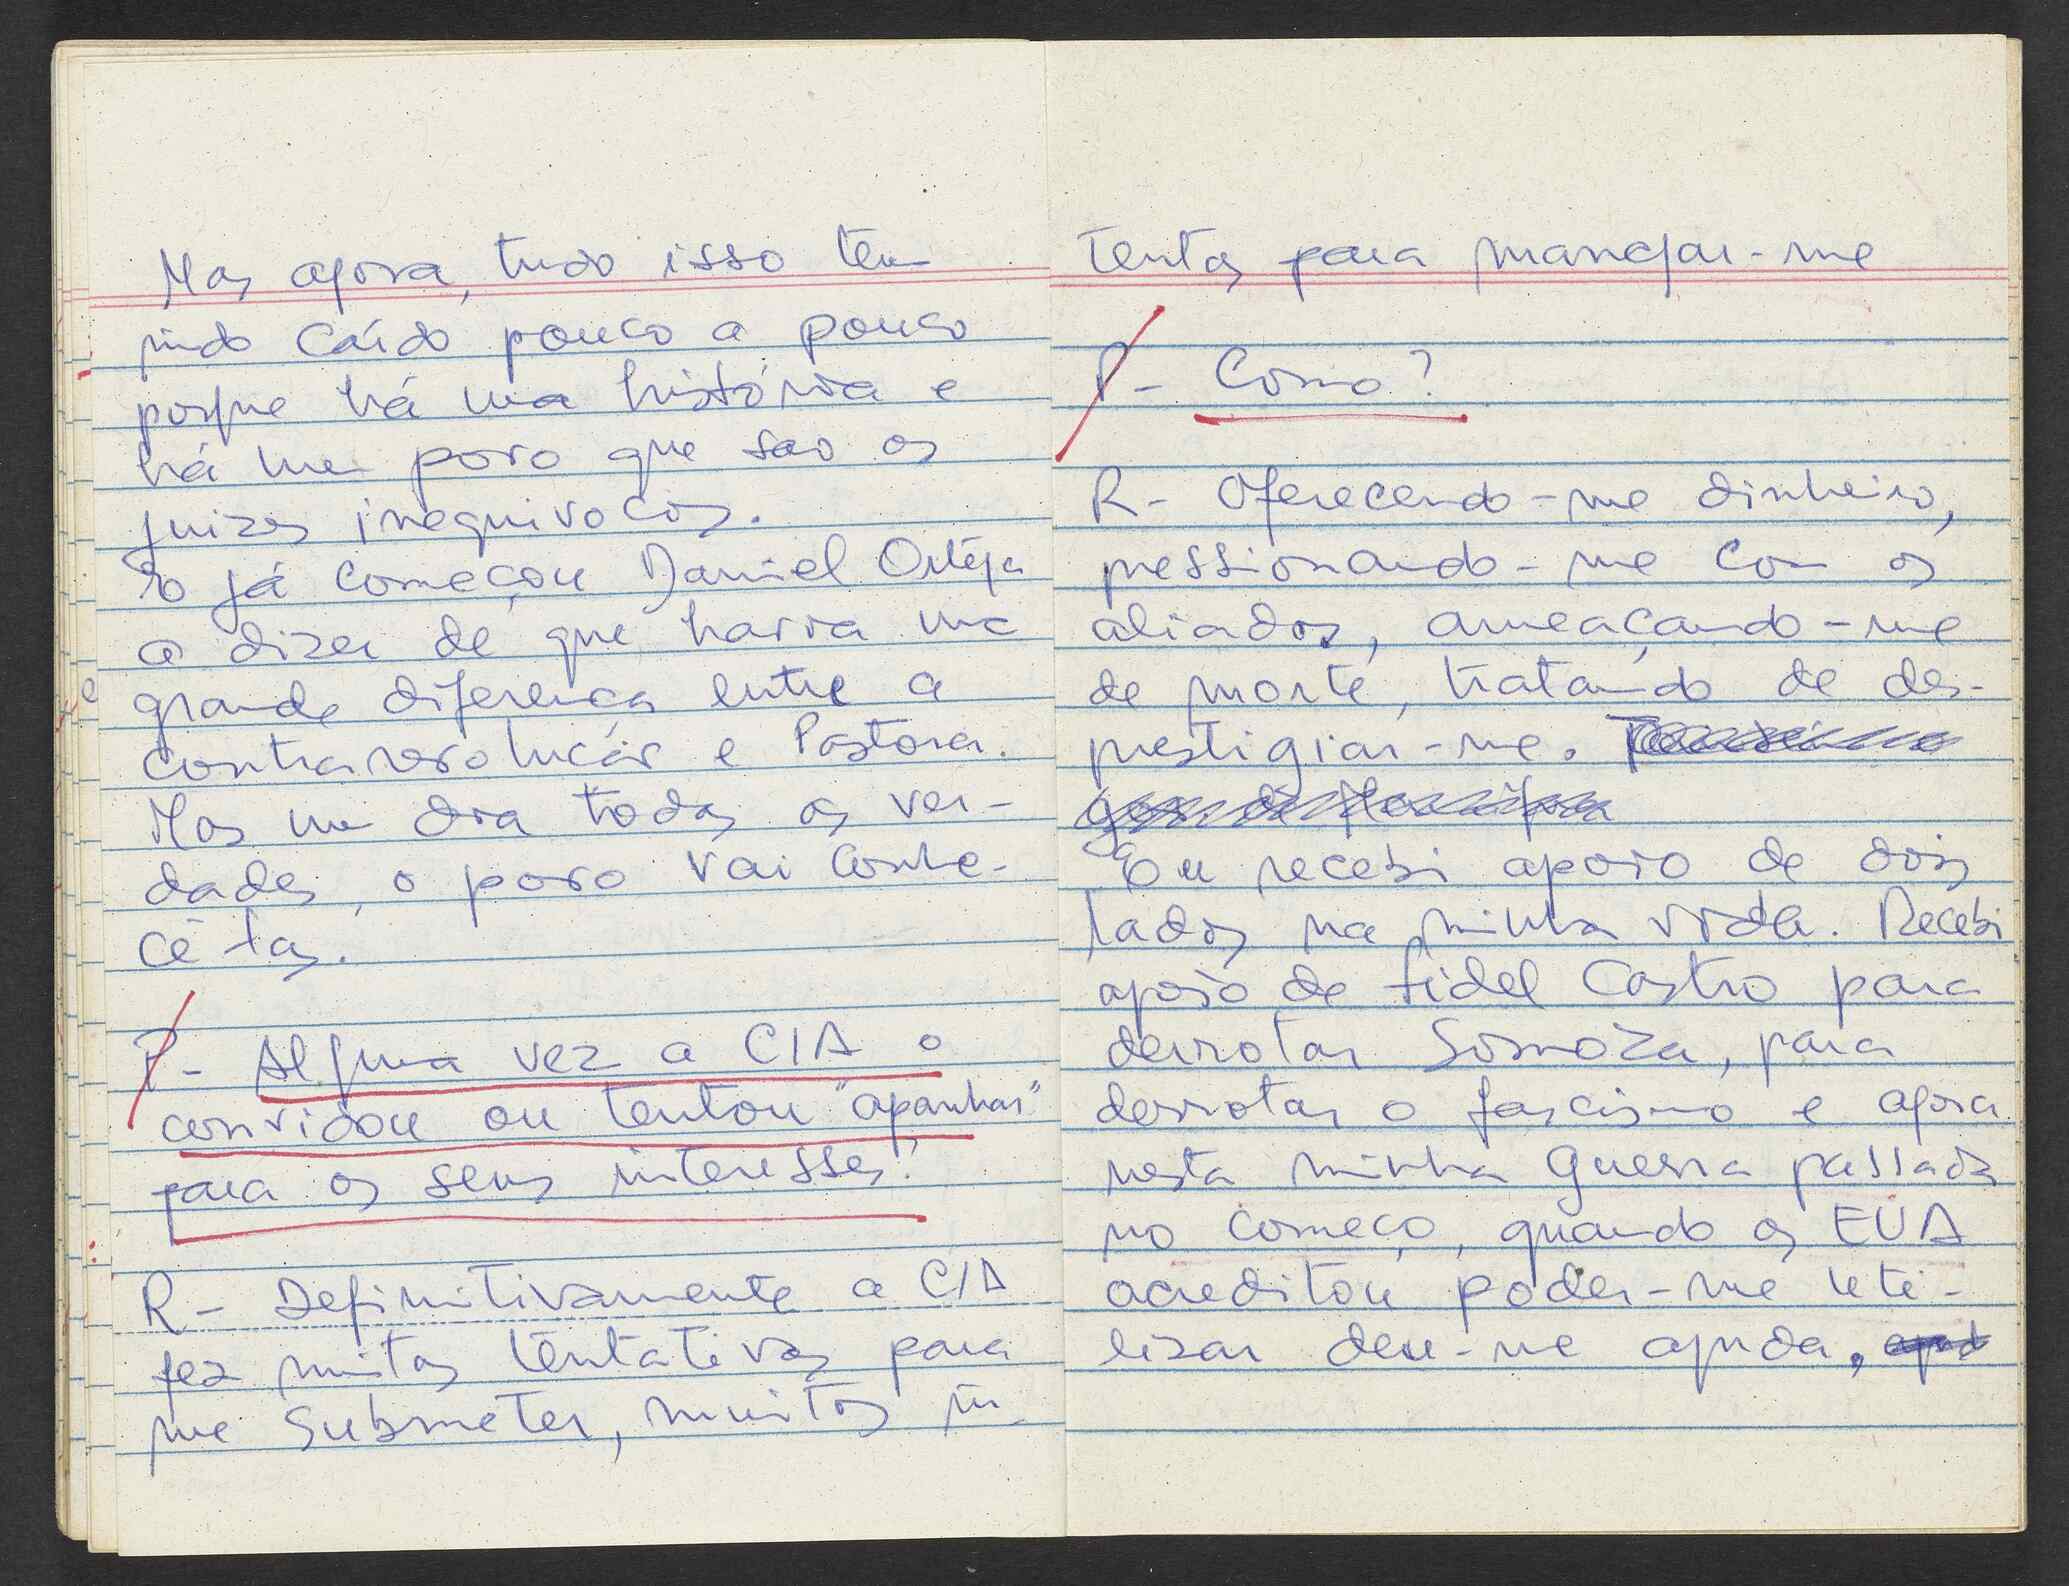 Mas agora, tudo isso tem
vindo caído pouco a pouco
porque há uma história e
há um povo que são os
juizes inequivocos.
Eo já começou Daniel Ortéga
a dizer de que havia uma
grande diferença entre a
contrarevolução e Pastora.
Mas um dia todas as ver-
dades, o povo vai conhe-
cê-las.
P- Alguma vez a CIA o
convidou ou tentou "apanhar"
para os seus interesses?
R- Definitivamente a CIA
fez muitas tentativas para
me submeter, muitos in-
tentos para manejar-me
P- Como?
R- Oferecendo-me dinheiro,
pressionando-me com os
aliados, ameaçando-me
de morte, tratando de des-
prestigiar-me.
Eu recebi apoio de dois
lados na minha vida. Recebi
apoio de Fidel Castro para
derrotar Somoza, para
derrotar o fascismo e agora
nesta minha guerra passada
no começo, quando os EUA
acreditou poder-me uti-
lizar deu-me ajuda,